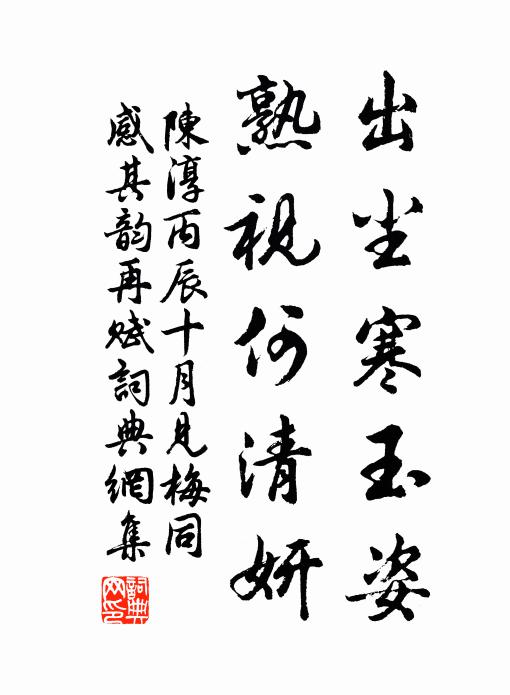 出尘寒玉姿
熟视何清妍
陳淳丙辰十月見梅同
感其韵再赋詞典網集
詞典網印